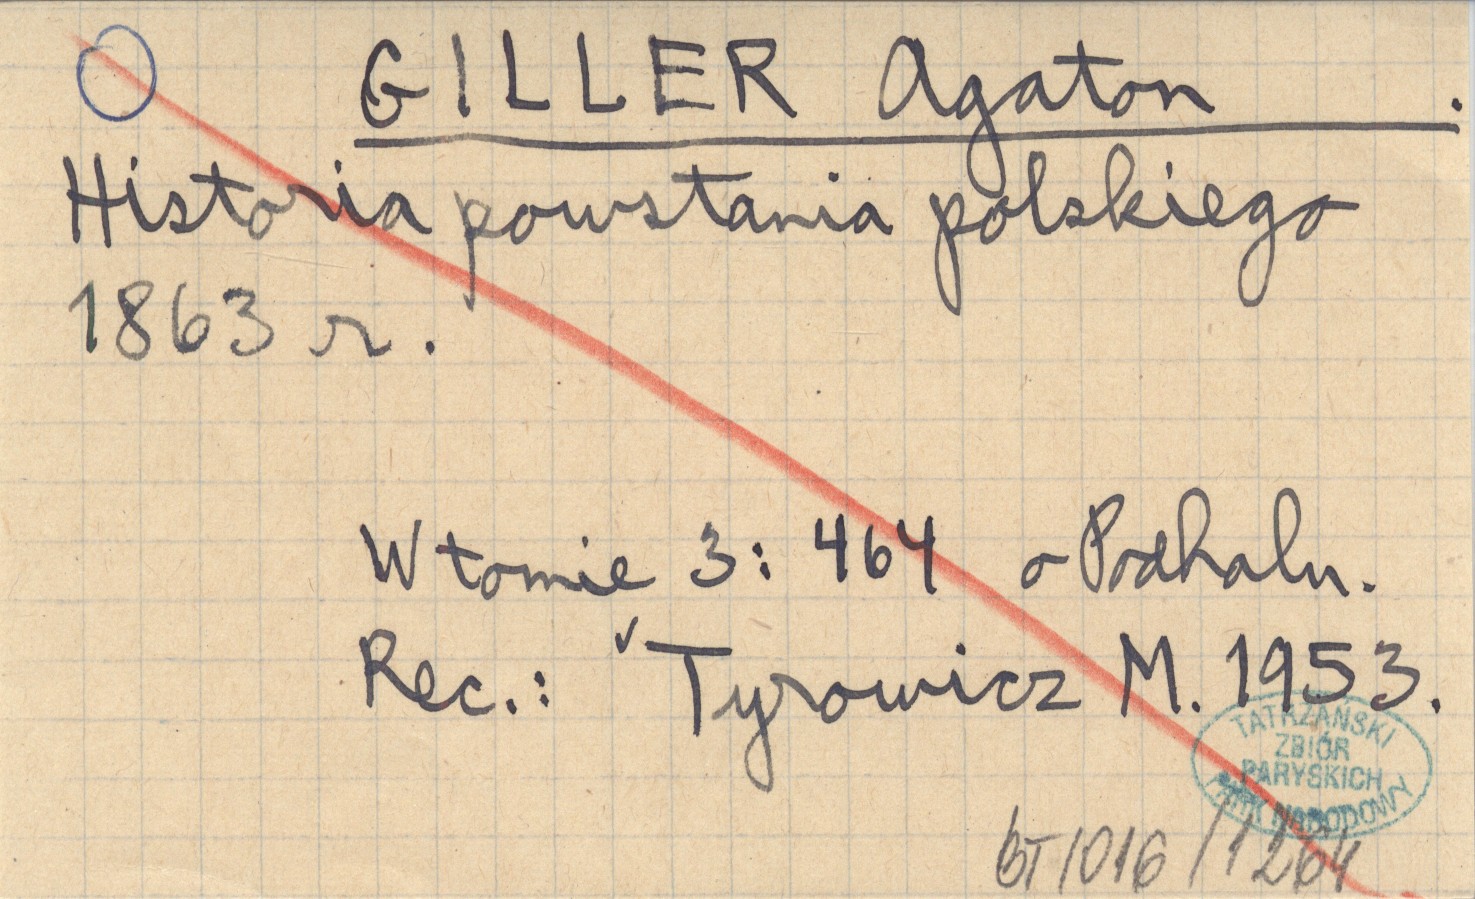 GILLER Agaton .
Historia powstania polskiego
1863 r.
W tomie 3: 464 o Podhalu.
Rec.: Tyrowicz M. 1953.
TATRZAŃSKI
ZBIÓR
PARYSKICH
PARK NARODOWY
BT/016/1264